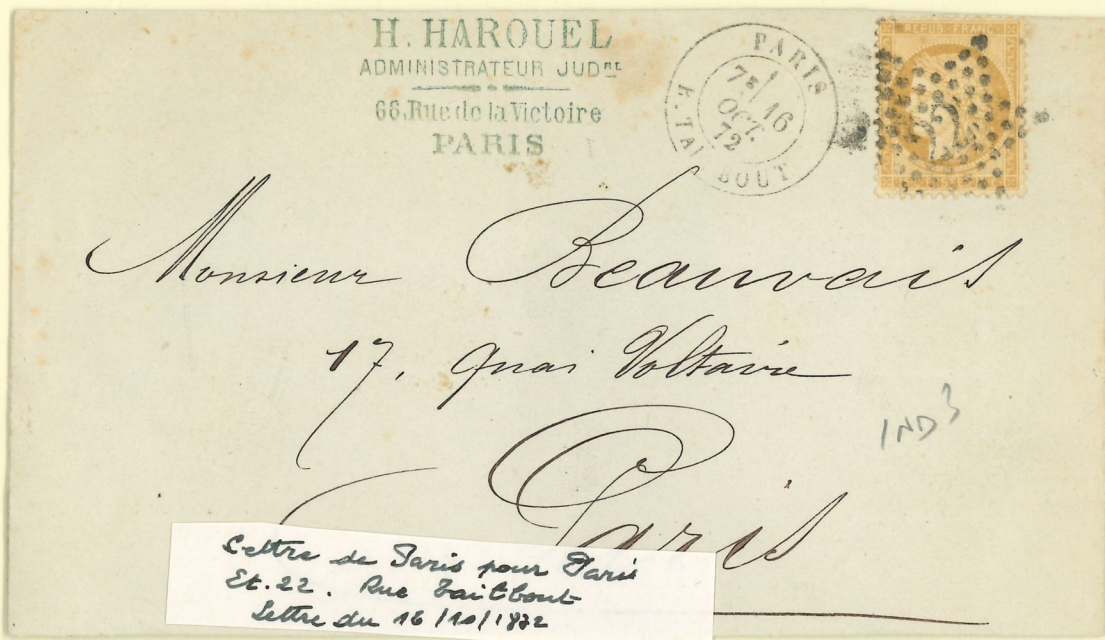 H. HAROUEL
ADMINISTRATEUR JUDRE
68, Rue de la Victoire
PARIS
PARIS
7E 16
OCT.
72
R. TAITBOUT
REPUB. FRANC.
22
Monsieur Beauvais
17, Quai Voltaire
Paris
IND 3
Lettre de Paris pour Paris
Et. 22. Rue Taitbout
Lettre du 16/10/1872